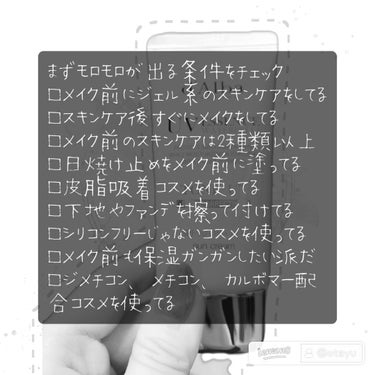 まずモロモロが出る条件をチェック
□メイク前にジェル系のスキンケアをしてる
□スキンケア後すぐにメイクをしてる
□メイク前のスキンケアは2種類以上
□日焼け止めをメイク前に塗ってる
□皮脂吸着コスメを使ってる
□下地やファンデを擦って付けてる
□シリコンフリーじゃないコスメを使ってる
□メイク前も保湿ガンガンしたい派だ
□ジメチコン、メチコン、カルボマー配
合コスメを使ってる